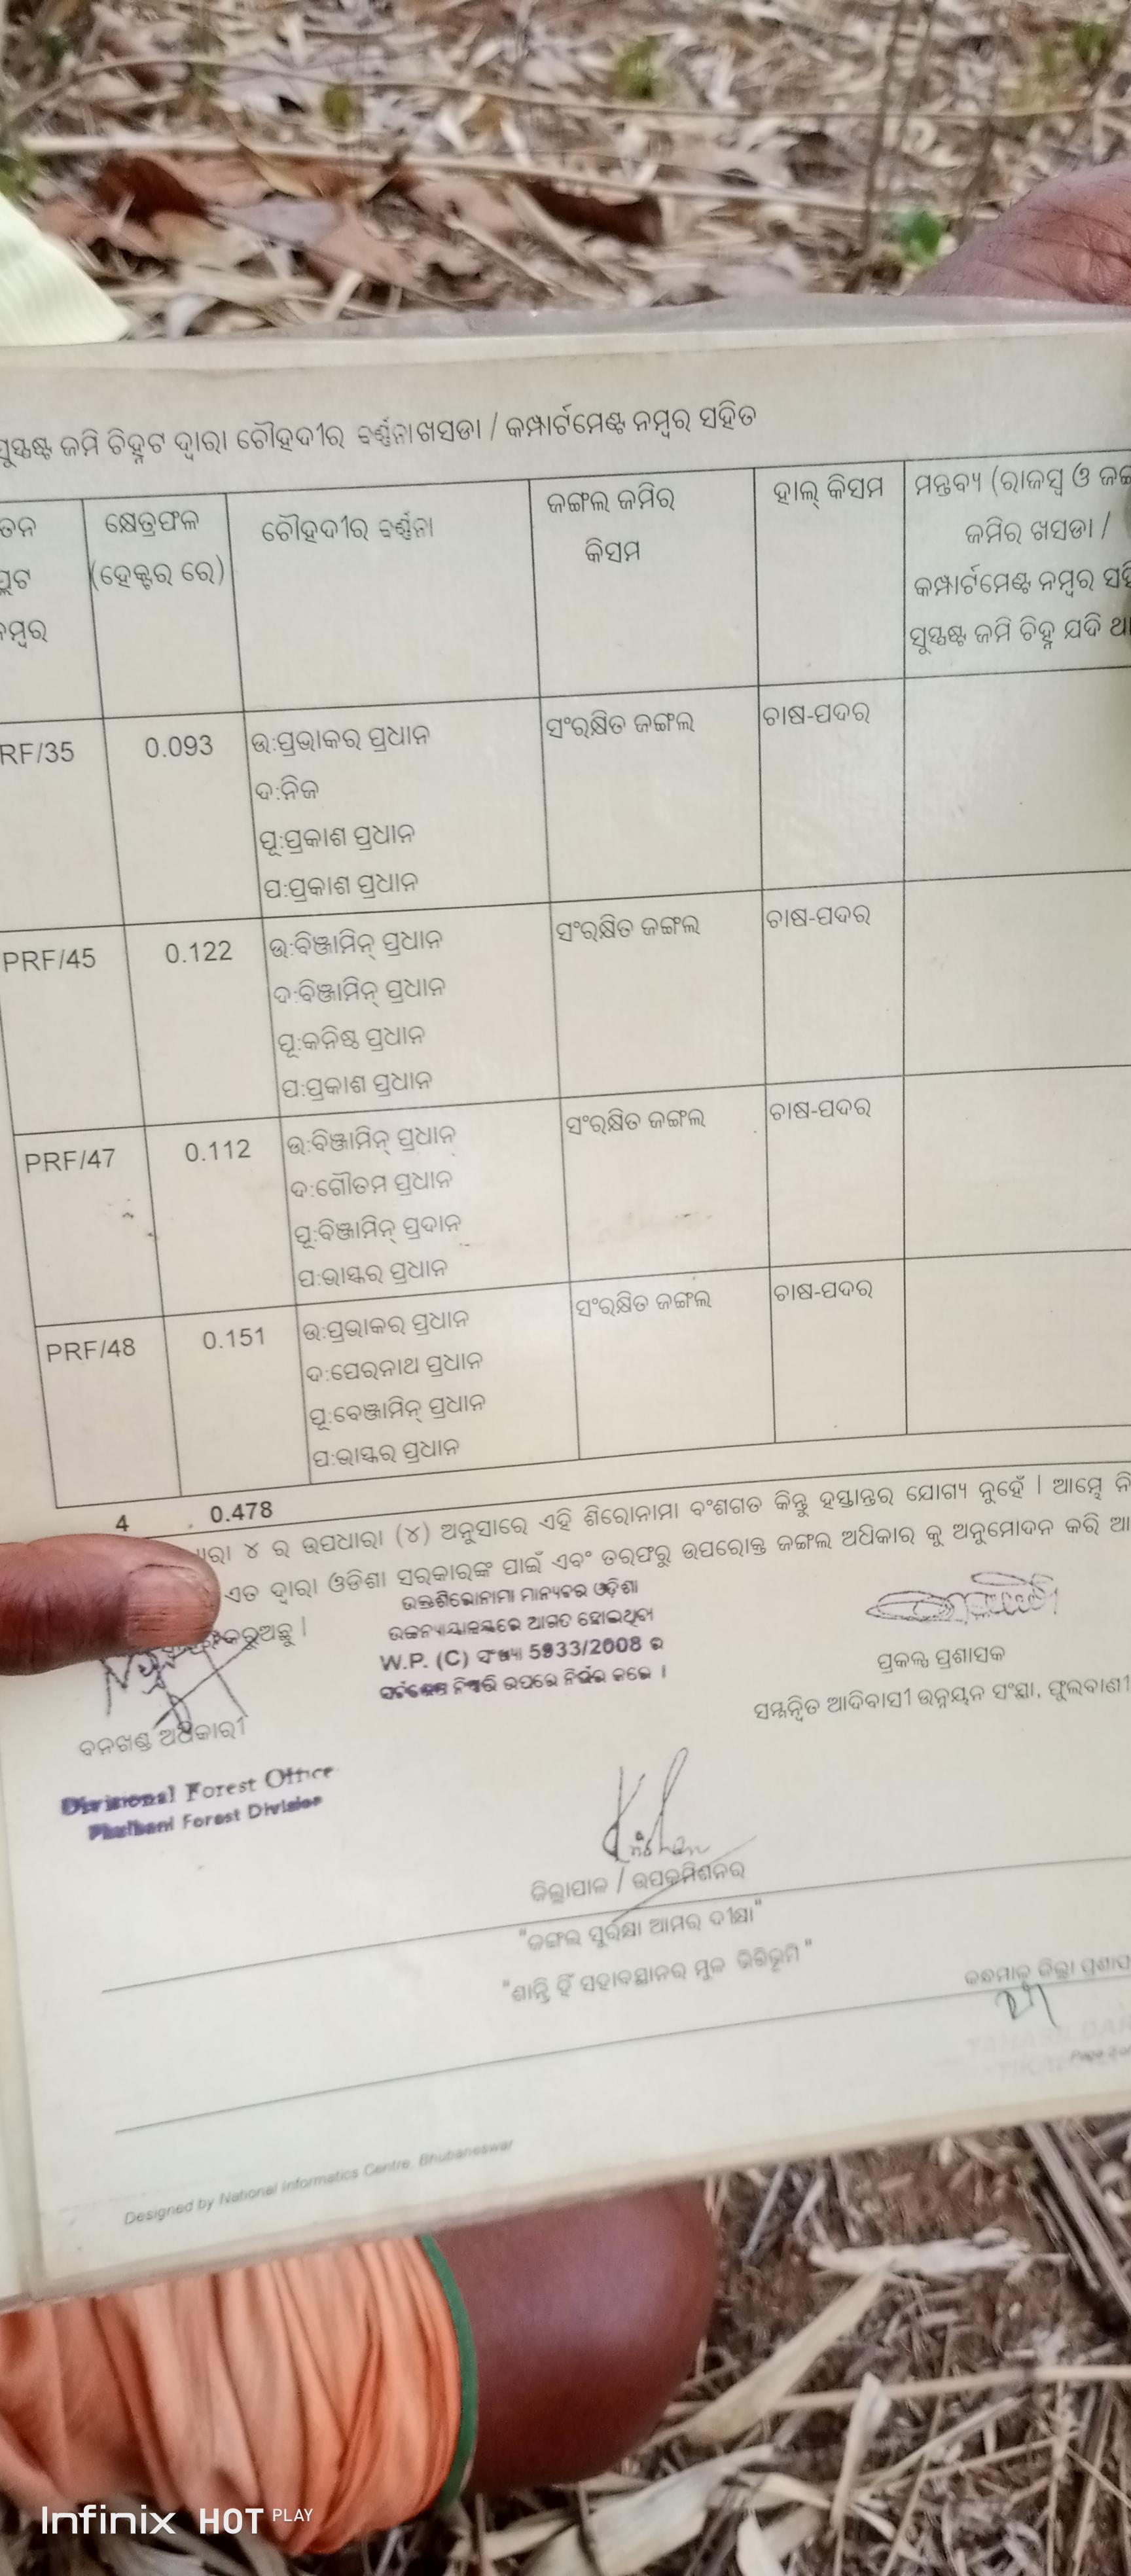 ସୁସ୍ପଷ୍ଟ ଜମି ଚିହ୍ନଟ ଦ୍ୱାରା ଚୌହଦୀର ବର୍ଣ୍ଣନା ଖସଡା / କମ୍ପାର୍ଟମେଣ୍ଟ ନମ୍ବର ସହିତ
ତନ
ପ୍ଲଟ
ନମ୍ବର
କ୍ଷେତ୍ରଫଳ
(ହେକ୍ଟର ରେ)
ଚୌହଦୀର ବର୍ଣ୍ଣନା
ଜଙ୍ଗଲ ଜମିର
କିସମ
ହାଲ୍ କିସମ
ମନ୍ତବ୍ୟ (ରାଜସ୍ୱ ଓ
ଜମିର ଖସଡା /
କମ୍ପାର୍ଟମେଣ୍ଟ ନମ୍ବର
ସୁସ୍ପଷ୍ଟ ଜମି ଚିହ୍ନ ଯଦି
RF/35 0.093 ଉ:ପ୍ରଭାକର ପ୍ରଧାନ ସଂରକ୍ଷିତ ଜଙ୍ଗଲ ଚାଷ-ପଦର
ଦ:ନିଜ
ପୂ:ପ୍ରକାଶ ପ୍ରଧାନ
ପ:ପ୍ରକାଶ ପ୍ରଧାନ
PRF/45 0.122 ଉ:ବିଞ୍ଜାମିନ୍ ପ୍ରଧାନ ସଂରକ୍ଷିତ ଜଙ୍ଗଲ ଚାଷ-ପଦର
ଦ:ବିଞ୍ଜାମିନ୍ ପ୍ରଧାନ
ପୂ:କନିଷ୍ଠ ପ୍ରଧାନ
ପ:ପ୍ରକାଶ ପ୍ରଧାନ
PRF/47 0.112 ଉ:ବିଞ୍ଜାମିନ୍ ପ୍ରଧାନ ସଂରକ୍ଷିତ ଜଙ୍ଗଲ ଚାଷ-ପଦର
ଦ:ଗୌତମ ପ୍ରଧାନ
ପୂ:ବିଞ୍ଜାମିନ୍ ପ୍ରଦାନ
ପ:ଭାସ୍କର ପ୍ରଧାନ
PRF/48 0.151 ଉ:ପ୍ରଭାକର ପ୍ରଧାନ ସଂରକ୍ଷିତ ଜଙ୍ଗଲ ଚାଷ-ପଦର
ଦ:ପେରନାଥ ପ୍ରଧାନ
ପୂ:ବେଞ୍ଜାମିନ୍ ପ୍ରଧାନ
ପ:ଭାସ୍କର ପ୍ରଧାନ
4 0.478
ଧାରା ୪ ର ଉପଧାରା (୪) ଅନୁସାରେ ଏହି ଶିରୋନାମା ବଂଶଗତ କିନ୍ତୁ ହସ୍ତାନ୍ତର ଯୋଗ୍ୟ ନୁହେଁ | ଆମ୍ଭେ
ଏତ ଦ୍ୱାରା ଓଡିଶା ସରକାରଙ୍କ ପାଇଁ ଏବଂ ତରଫରୁ ଉପରୋକ୍ତ ଜଙ୍ଗଲ ଅଧିକାର କୁ ଅନୁମୋଦନ କରି
କରୁଅଛୁ |
ଉକ୍ତ ଶିରୋନାମା ମାନ୍ୟବର ଓଡ଼ିଶା
ଉଚ୍ଚନ୍ୟାୟାଳୟରେ ଆଗତ ହୋଇଥିବା
W.P. (C) ସଂଖ୍ୟା 5933/2008 ର
ଉପରେ ନିର୍ଭର କରେ |
ପ୍ରକଳ୍ପ ପ୍ରଶାସକ
ସମନ୍ୱିତ ଆଦିବାସୀ ଉନ୍ନୟନ ସଂସ୍ଥା, ଫୁଲବାଣୀ
ବନଖଣ୍ଡ ଅଧିକାରୀ
Divisional Forest Office
Phulbani Forest Division
ଜିଲ୍ଲାପାଳ / ଉପକମିଶନର
"ଜଙ୍ଗଲ ସୁରକ୍ଷା ଆମର ଦୀକ୍ଷା"
"ଶାନ୍ତି ହିଁ ସହାବସ୍ଥାନର ମୂଳ ଭିତ୍ତିଭୂମି"
କନ୍ଧମାଳ ଜିଲ୍ଲା
Designed by National Informatics Centre, Bhubaneswar
Infinix HOT PLAY